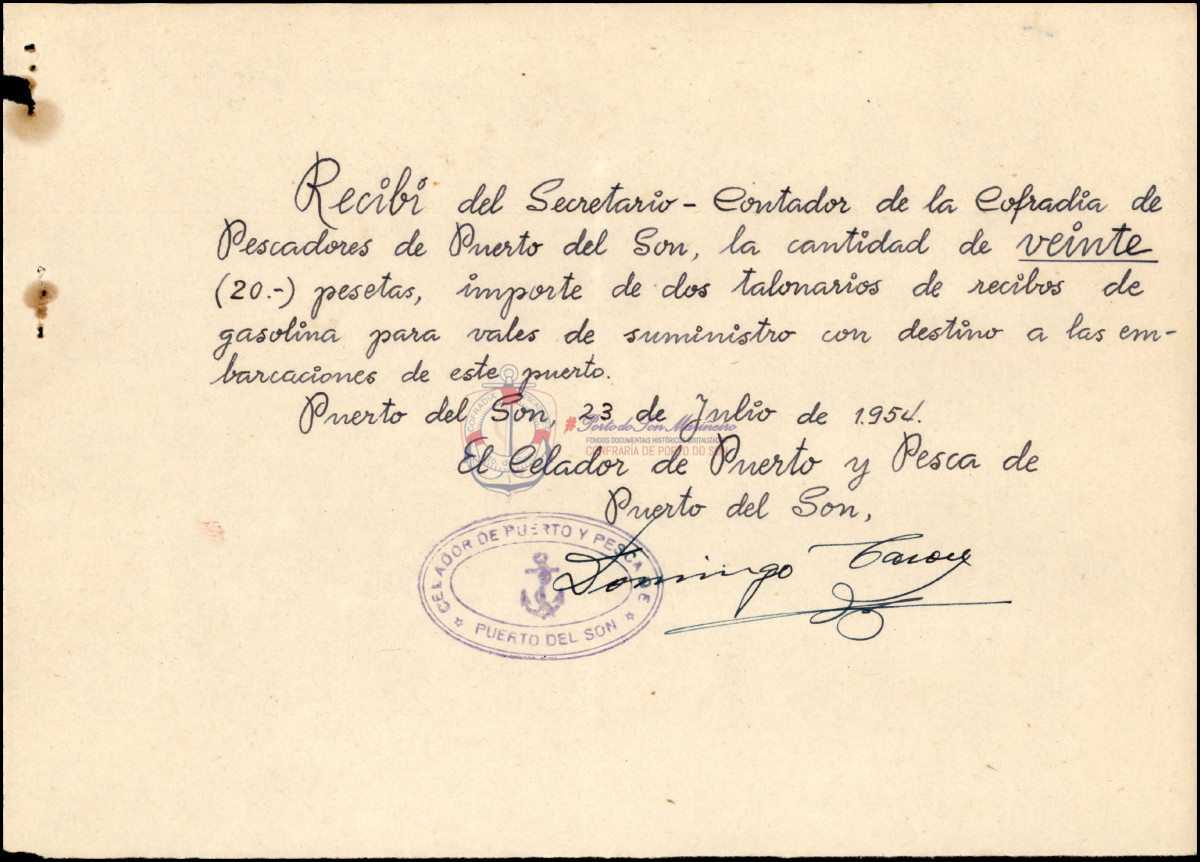 Recibí del Secretario - Contador de la Cofradía de
Pescadores de Puerto del Son, la cantidad de veinte
(20.-) pesetas, importe de dos talonarios de recibos de
gasolina para vales de suministro con destino a las em-
barcaciones de este puerto.
Puerto del Son, 23 de Julio de 1.954.
#Porto do Son Mariñeiro
FONDOS DOCUMENTAIS HISTÓRICOS DIXITALIZADOS
CONFRARÍA DE PORTO DO SON
El Celador de Puerto y Pesca de
Puerto del Son,
CELADOR DE PUERTO Y PESCA DE
PUERTO DEL SON
Domingo